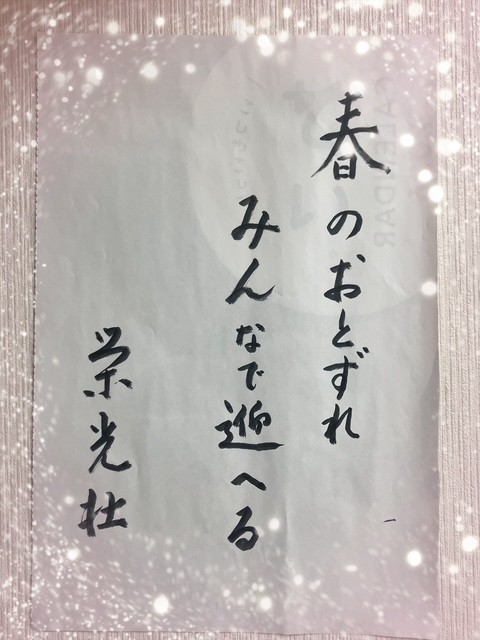 春のおとずれ
みんなで迎へる
栄光社
CALENDAR